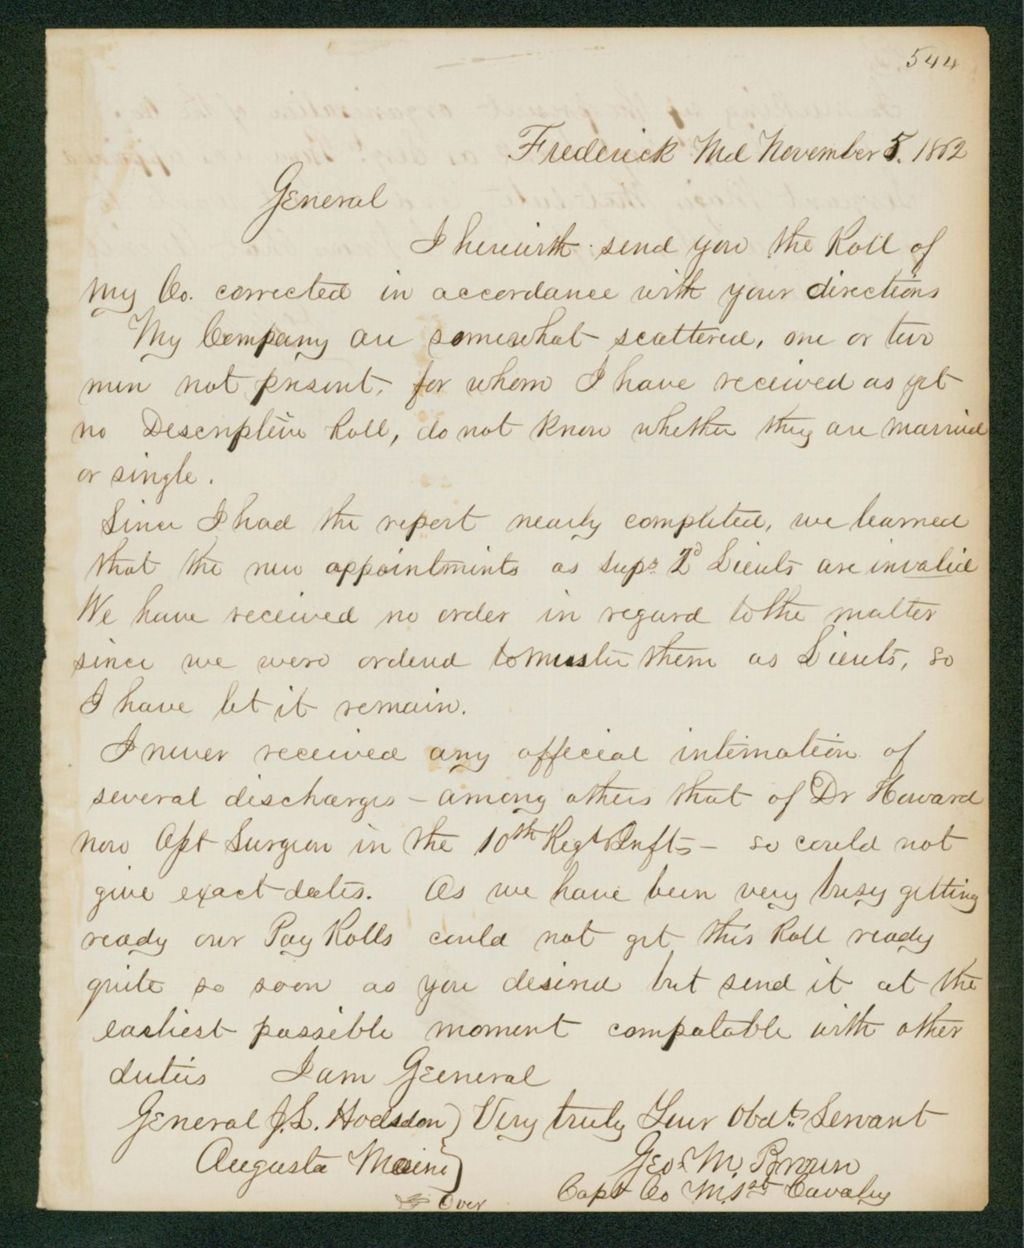 544
Frederick Md November 5. 1862
General
I herewith send you the Roll of
my Co. corrected in accordance with your directions
My Company are somewhat scattered, one or two
men not present, for whom I have received as yet
no Descriptive Roll, do not know whether they are married
or single.
Since I had the report nearly completed, we learned
that the new appointments as sups. 2d Lieuts are invalid
We have received no order in regard to the matter
since we were ordered to muster them as Lieuts, so
I have let it remain.
I never received any official intimation of
several discharges - among others that of Dr Howard
now Apt Surgeon in the 10th Regt Inft - so could not
give exact dates. As we have been very busy getting
ready our Pay Rolls could not get this Roll ready
quite so soon as you desired but send it at the
earliest possible moment compatable with other
duties I am Geeneral
General J. L. Hodsdon } Very truly Your Obdt. Servant
Augusta Maine } Geo. M. Brown
Over Capt Co M 1st Cavalry